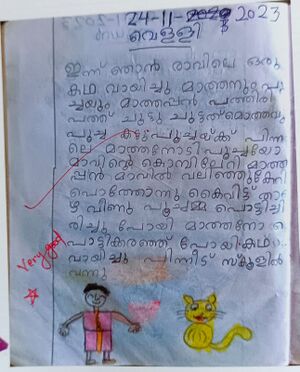 24-11-2023
വെള്ളി
ഇന്ന് ഞാൻ രാവിലെ ഒരു
കഥ വായിച്ചു മാത്തനും പൂ
ച്ചയും മാത്തപ്പൻ പത്തിരി
പത്ത് ചുട്ടു ചുട്ടത്
പൂച്ച കട്ടു പൂച്ചയ്ക്ക് പിന്ന
ലെ മാത്തനോടി പൂച്ചയോ
മാവിന്റെ കൊമ്പിലേറി മാത്ത
പ്പൻ മാവിൽ വലിഞ്ഞുകേറി
പൊത്തോന്നു കൈവിട്ട് താ
ഴെ വീണു പൂച്ചമ്മ പൊട്ടിച്ചി
രിച്ചു പോയി മാത്തനോ
പൊട്ടികരഞ്ഞ് പോയി കഥ
വായിച്ചു പിന്നീട് സ്കൂളിൽ
വന്നു
Very good